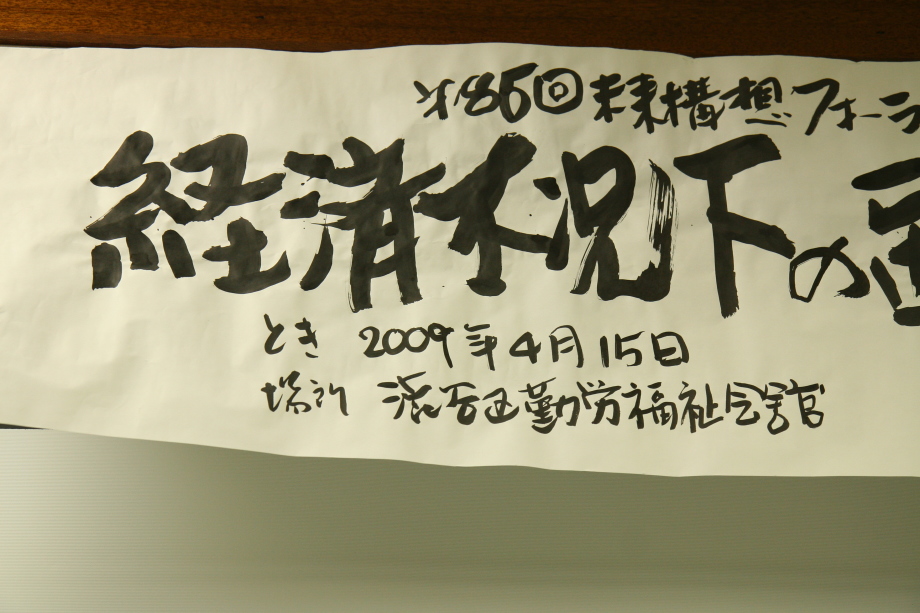 第85回未来構想フォーラ
経済不況下の
とき 2009年4月15日
場所 渋谷区勤労福祉会館